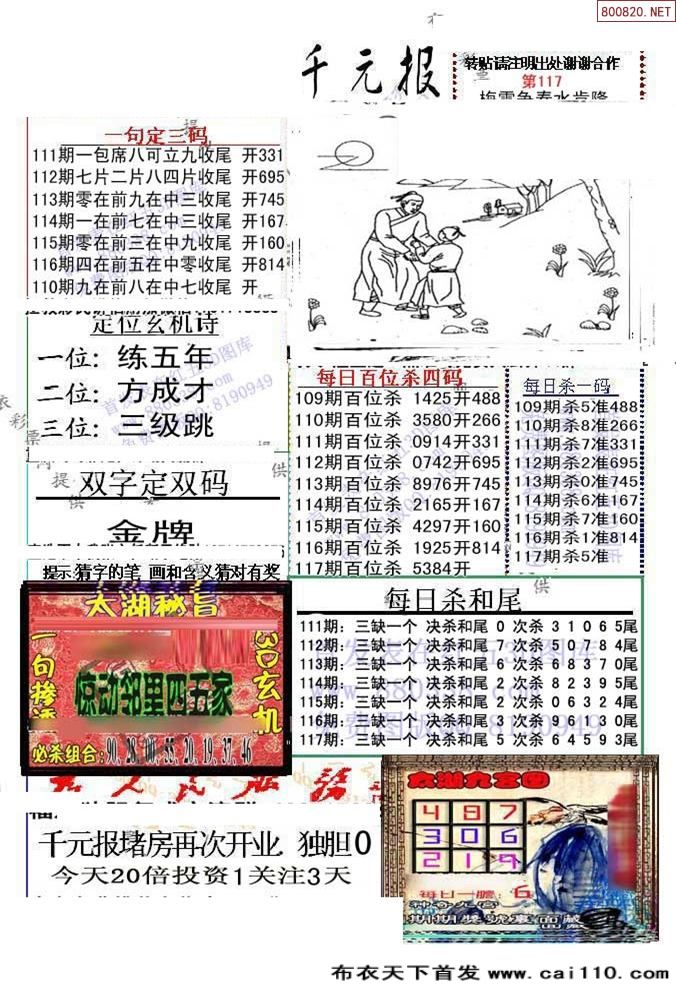 800820.NET
千元报
转贴请注明出处谢谢合作
第117
梅雪争春水肯降
一句定三码
111期一包席八可立九收尾 开331
112期七片二片八四片收尾 开695
113期零在前九在中三收尾 开745
114期一在前七在中三收尾 开167
115期零在前三在中九收尾 开160
116期四在前五在中零收尾 开814
110期九在前八在中七收尾 开
定位玄机诗
一位: 练五年
二位: 方成才
三位: 三级跳
双字定双码
金牌
提示:猜字的笔 画和含义猜对有奖
每日百位杀四码
109期百位杀 1425开488
110期百位杀 3580开266
111期百位杀 0914开331
112期百位杀 0742开695
113期百位杀 8976开745
114期百位杀 2165开167
115期百位杀 4297开160
116期百位杀 1925开814
117期百位杀 5384开
每日杀一码
109期杀5准488
110期杀8准266
111期杀7准331
112期杀2准695
113期杀0准745
114期杀6准167
115期杀7准160
116期杀1准814
117期杀5准
每日杀和尾
111期: 三缺一个 决杀和尾 0 次杀 3 1 0 6 5尾
112期: 三缺一个 决杀和尾 7 次杀 5 0 7 8 4尾
113期: 三缺一个 决杀和尾 6 次杀 6 8 3 7 0尾
114期: 三缺一个 决杀和尾 2 次杀 8 2 3 9 5尾
115期: 三缺一个 决杀和尾 2 次杀 0 6 3 2 4尾
116期: 三缺一个 决杀和尾 3 次杀 9 6 1 3 0尾
117期: 三缺一个 决杀和尾 5 次杀 6 4 5 9 3尾
太湖秘旨
一句掺透
3D玄机
惊动邻里四五家
必杀组合:90.28.00.55.20.19.37.46
千元报堵房再次开业 独胆0
今天20倍投资1关注3天
太湖九宫图
4 8 7
3 0 6
2 1 9
每日一胆: 6
神奇九宫
期期奖号里面藏
布衣天下首发 www.cai110.com